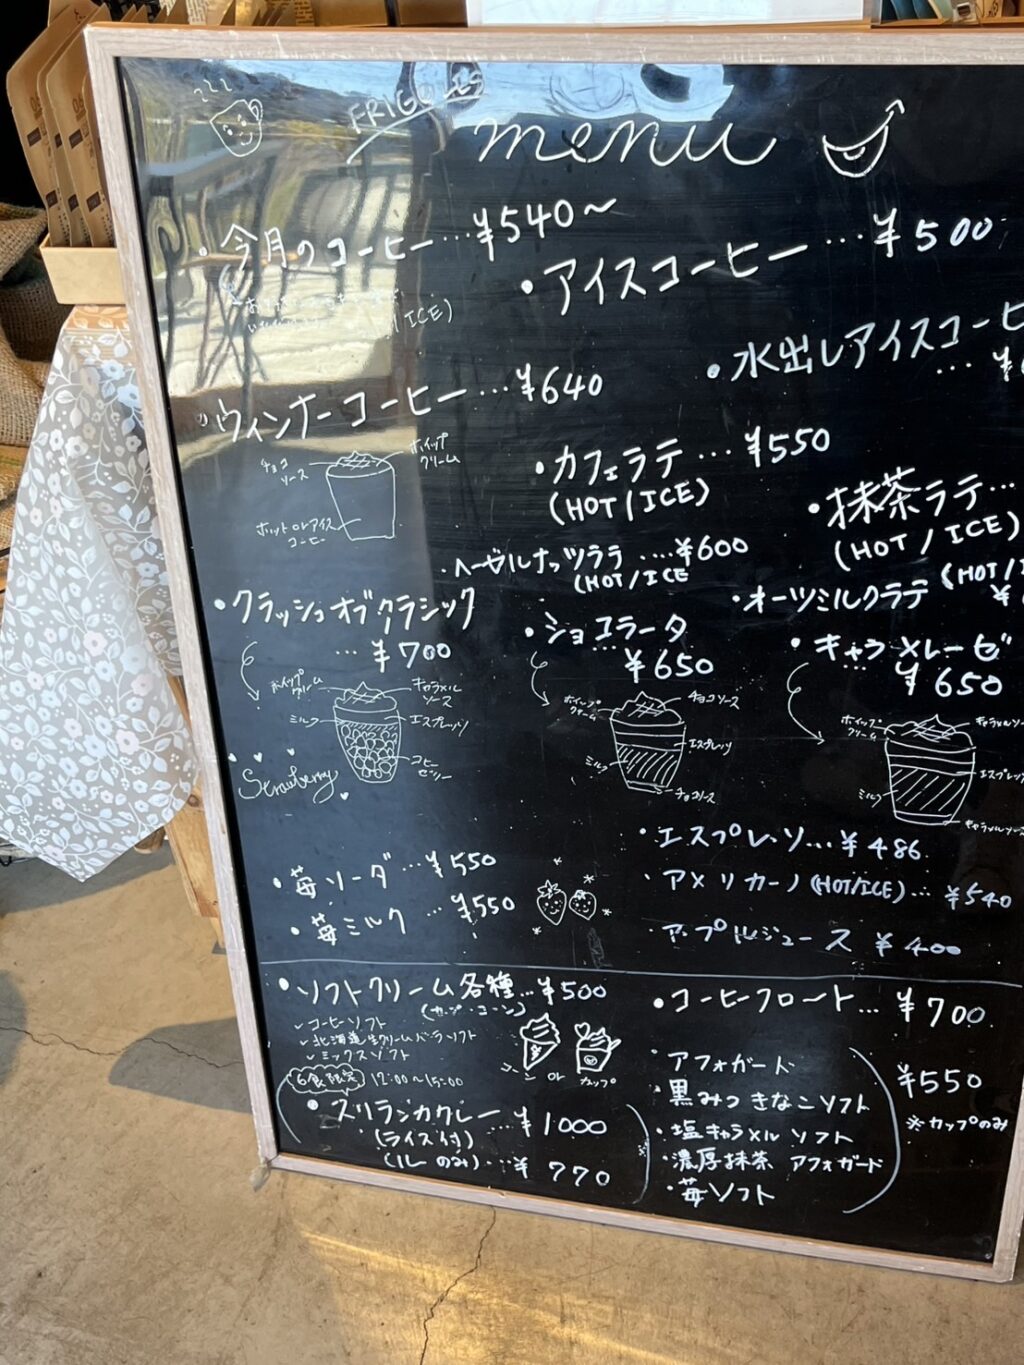 menu
・今月のコーヒー…¥540〜
ICE)
・アイスコーヒー…¥500
・水出しアイスコーヒ
…¥
・ウィンナーコーヒー…¥640
チョコソース
ホイップクリーム
ホットorアイスコーヒー
・カフェラテ…¥550
(HOT/ICE)
・抹茶ラテ…
(HOT/ICE)
・ヘーゼルナッツラテ…¥600
(HOT/ICE
・オーツミルクラテ(HOT/I
¥
・クラッシュオブクラシック
…¥700
ホイップクリーム
キャラメルソース
ミルク
エスプレッソ
コーヒーゼリー
・ショコラータ
…¥650
ホイップクリーム
チョコソース
エスプレッソ
ミルク
チョコソース
・キャラメレーゼ
…¥650
ホイップクリーム
キャラメルソー
エスプレッ
ミルク
キャラメルソース
Strawberry
・苺ソーダ…¥550
・苺ミルク…¥550
・エスプレッソ…¥486
・アメリカーノ(HOT/ICE)…¥540
・アップルジュース ¥400
・ソフトクリーム各種…¥500
(カップ・コーン)
✓コーヒーソフト
✓北海道生クリームバニラソフト
✓ミックスソフト
コーン or カップ
6食限定 12:00〜15:00
・スリランカカレー ¥1000
(ライス付)
(ルーのみ)…¥770
・コーヒーフロート…¥700
・アフォガード
・黒みつきなこソフト
・塩キャラメルソフト
・濃厚抹茶アフォガード
・苺ソフト
¥550
※カップのみ